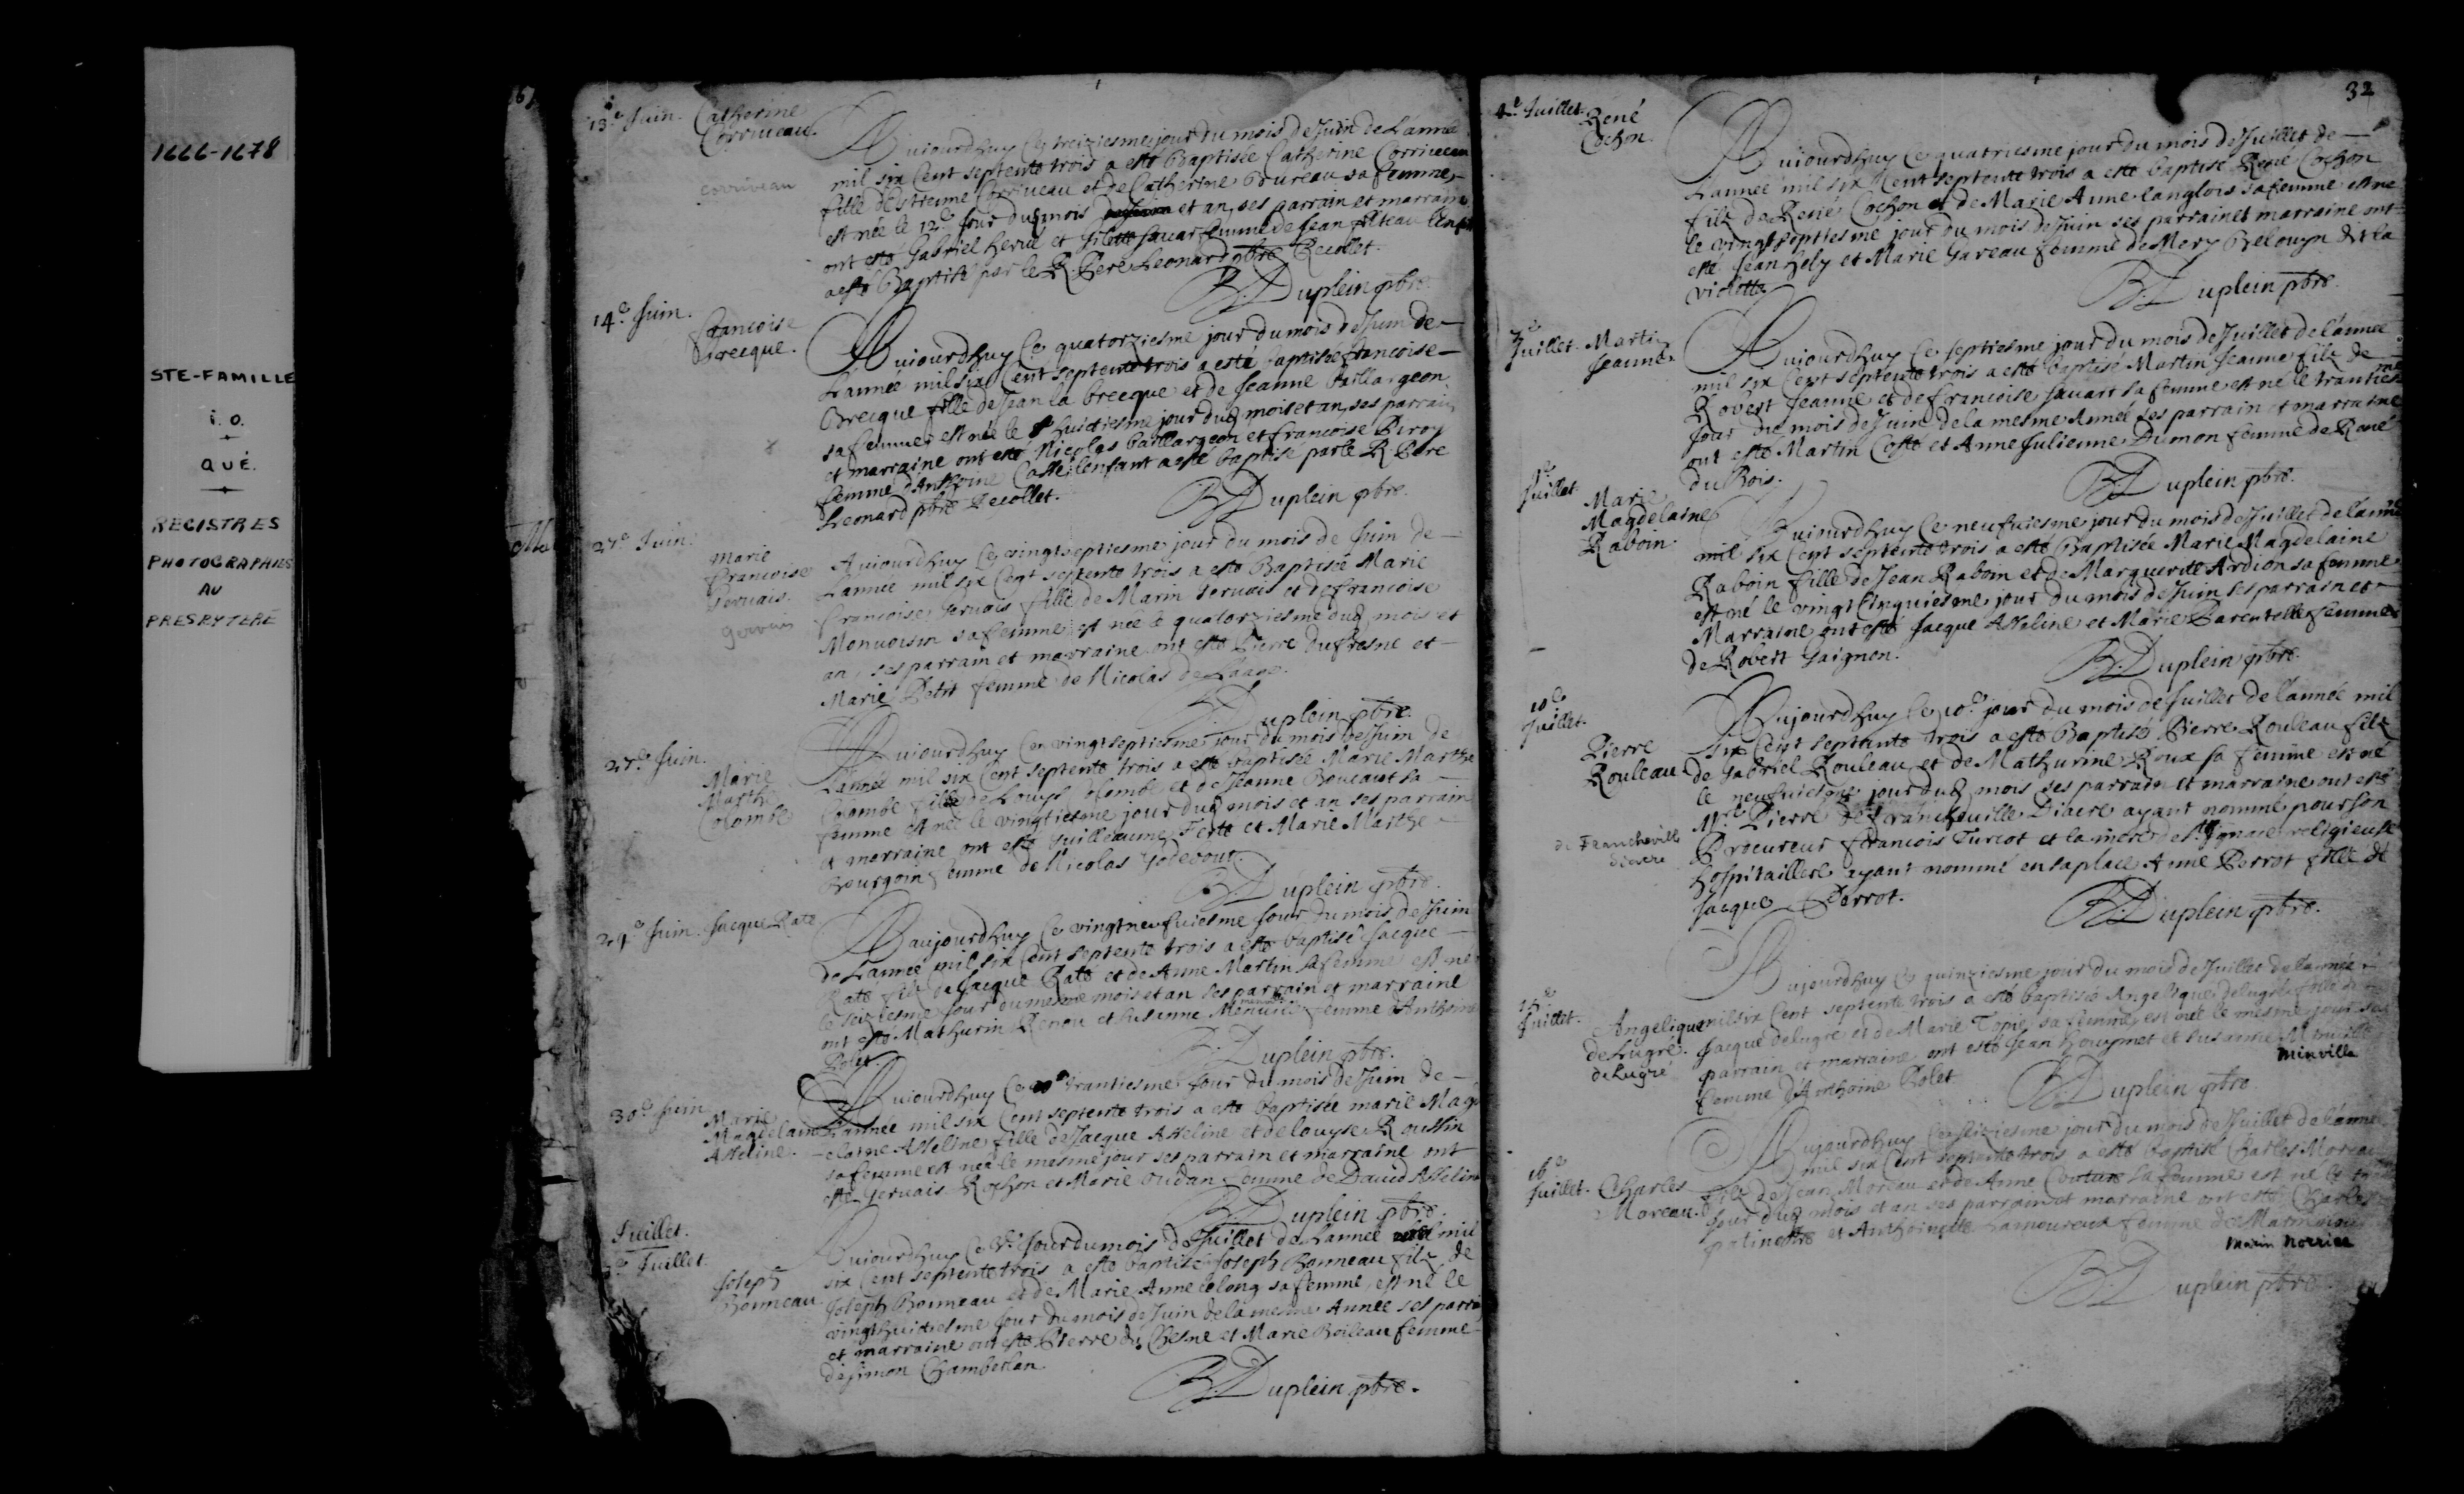 1666-1678
STE-FAMILLE
I. O.
QUÉ.
REGISTRES
PHOTOGRAPHIES
AU
PRESBYTERE
13e Juin. Catherine
Corriveau.
corriveau
Aujourdhuy Ce treiziesme jour du mois de Juin de L'année
mil six Cent septente trois a esté Baptisée Catherine Corriveau
fille d'Estienne Corriveau et de Catherine Bureau sa femme
est née le 12e jour dud mois et an, ses parrain et marraine
ont esté Gabriel hervé et femme de Jean filteau
a esté Baptisé par le R. Pere Leonard pbre Recollet.
R. Duplein pbre.
14e Juin.
Francoise
Brecque.
Aujourdhuy Ce quatorziesme jour du mois de Juin de
L'année mil six Cent septente trois a esté baptisée francoise
Brecque fille de Jean la brecque et de Jeanne baillargeon
sa femme est née le huictiesme jour dud mois et an, ses parrain
et marraine ont esté Nicolas baillargeon et francoise Piroy
femme d'Anthoine Cassé lenfant a esté baptisé par le R. Pere
Leonard pbre Recollet.
R. Duplein pbre.
27e Juin.
Marie
francoise
Gervais.
Gervais
Aujourdhuy Ce vingtseptiesme jour du mois de Juin de
L'année mil six Cent septente trois a esté Baptisée Marie
francoise Gervais fille de Marin Gervais et de francoise
Monvoisin sa femme est née le quatorziesme dud mois et
an, ses parrain et marraine ont esté Pierre dufresne et
Marie Petit femme de Nicolas de Laage.
R. Duplein pbre.
27e Juin.
Marie
Marthe
Colombe
Aujourdhuy Ce vingtseptiesme jour du mois de Juin de
L'année mil six Cent septente trois a esté baptisée Marie Marthe
Colombe fille de Louys Colombe et de Jeanne Boucaut sa
femme est née le vingtiesme jour dud mois et an ses parrain
et marraine ont esté Guilleaume Ferté et Marie Marthe
Bourgoin femme de Nicolas Godebout.
R. Duplein pbre.
29e Juin. Jacque Raté
Aujourdhuy Ce vingtneufuiesme Jour du mois de Juin
de L'année mil six Cent septente trois a esté baptisé Jacque
Raté filz de Jacque Raté et de Anne Martin sa femme est né
le seiziesme jour du mesme mois et an ses parrain et marraine
ont esté Mathurin Renou et Susanne femme d'Anthoine
Polet.
R. Duplein pbre.
30e Juin
Marie
Magdelaine
Asseline.
Aujourdhuy Ce trantiesme jour du mois de Juin de
L'année mil six Cent septente trois a esté baptisée marie Mag-
elaine Asseline fille de Jacque Asseline et de louyse Roussin
sa femme est née le mesme jour ses parrain et marraine ont
esté Gervais Rochon et Marie Oudan femme de David Asseline
R. Duplein pbre.
Juillet.
Juillet.
Joseph
Bonneau.
Aujourdhuy Ce jour du mois de Juillet de L'année mil
six Cent septente trois a esté baptisé Joseph Bonneau filz de
Joseph Bonneau et de Marie Anne lelong sa femme, est né le
vingthuictiesme jour du mois de Juin de la mesme Année ses parrain
et marraine ont esté Pierre du Chesne et Marie Boileau femme
de simon Chamberlan
R. Duplein pbre.
32
4e Juillet. René
Cochon.
Aujourdhuy Ce quatriesme jour du mois de Juillet de
L'année mil six Cent septente trois a esté baptisé René Cochon
filz de René Cochon et de Marie Anne langlois sa femme est né
le vingtseptiesme jour du mois de Juin ses parrain et marraine ont
esté Jean hely et Marie Gareau femme de Mery Belouyn dit la
violette
R. Duplein pbre.
7e
Juillet. Martin
Jeanne.
Aujourdhuy Ce septiesme jour du mois de Juillet de l'année
mil six Cent septente trois a esté baptisé Martin Jeanne filz de
Robert Jeanne et de francoise savart sa femme est né le trantiesme
jour du mois de Juin de la mesme Année ses parrain et marraine
ont esté Martin Costé et Anne Julienne Dumon femme de René
du Bois.
R. Duplein pbre.
Juillet.
Marie
Magdelaine
Raboin.
Aujourdhuy Ce neufuiesme jour du mois de Juillet de lannée
mil six Cent septente trois a esté Baptisée Marie Magdelaine
Raboin fille de Jean Raboin et de Marguerite Ardion sa femme
est né le vingt Cinquiesme jour du mois de Juin ses parrain et
Marraine ont esté Jacque Asseline et Marie Parentelle femme
de Robert Gaignon.
R. Duplein pbre.
10e
Juillet.
Pierre
Rouleau
de Francheville
diacre
Aujourdhuy Ce 10e jour du mois de Juillet de l'année mil
six Cent septente trois a esté Baptisé Pierre Rouleau filz
de Gabriel Rouleau et de Mathurine Roux sa femme est né
le neufuiesme jour dud mois ses parrain et marraine ont esté
Mre Pierre de francheuille Diacre ayant nommé pour son
Procureur francois Turcot et la mere de St Ignace religieuse
hospitailliere ayant nommé en sa place Anne Perrot fille de
Jacque Perrot.
R. Duplein pbre.
15e
Juillet.
Angelique
deLugré.
deLugré
Aujourdhuy Ce quinziesme jour du mois de Juillet de lannée
mil six Cent septente trois a esté baptisée Angelique delugré fille de
Jacque delugré et de Marie Topie, sa femme est née le mesme jour ses
parrain et marraine ont esté Jean houymet et Susanne
Minville
femme d'Anthoine Polet
R. Duplein pbre.
16e
Juillet. Charles
Moreau.
Aujourdhuy Ce seiziesme jour du mois de Juillet de l'année
mil six Cent septente trois a esté baptisé Charles Moreau
filz de Jean Moreau et de Anne Couture sa femme est né le
jour dud mois et an ses parrain et marraine ont esté Charles
et Anthoinette Lamoureux femme de Marin
Marin Norrice
R. Duplein pbre.